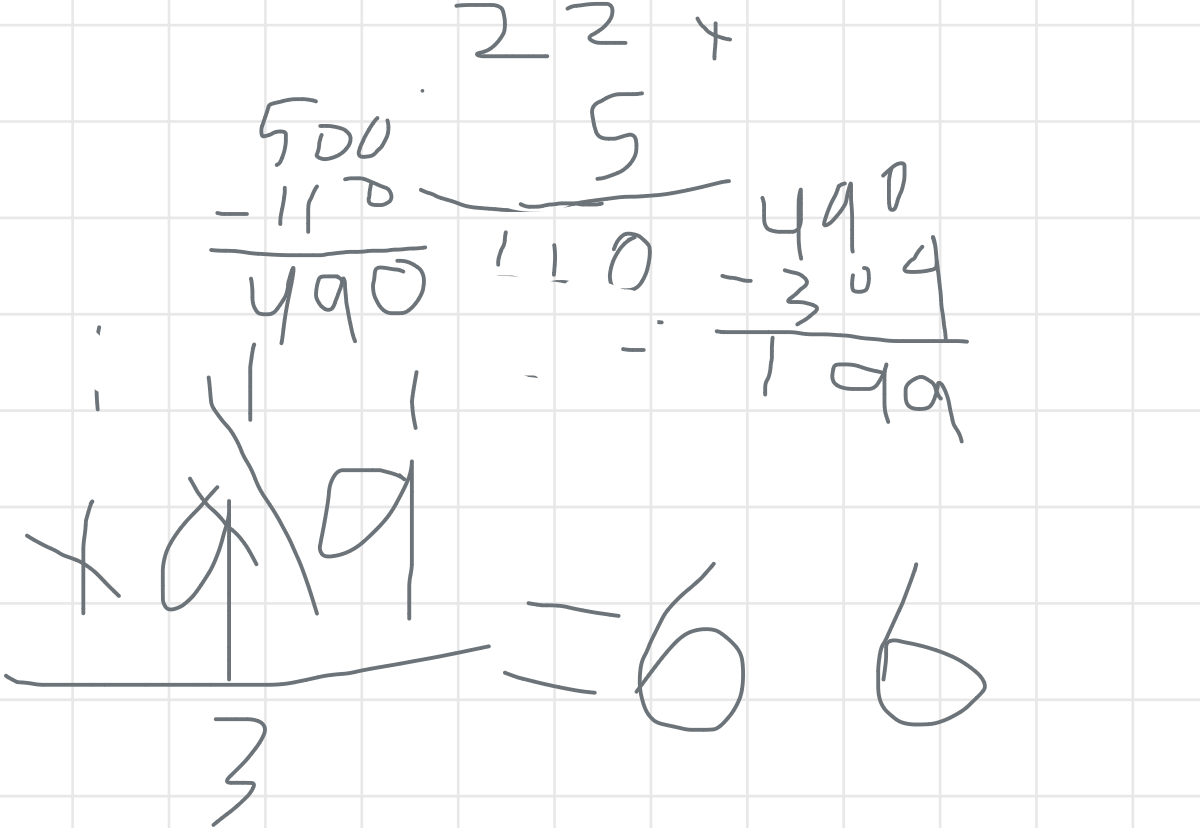 22 x
5
110
500
-110
490
490
-304
199
199
3
= 66